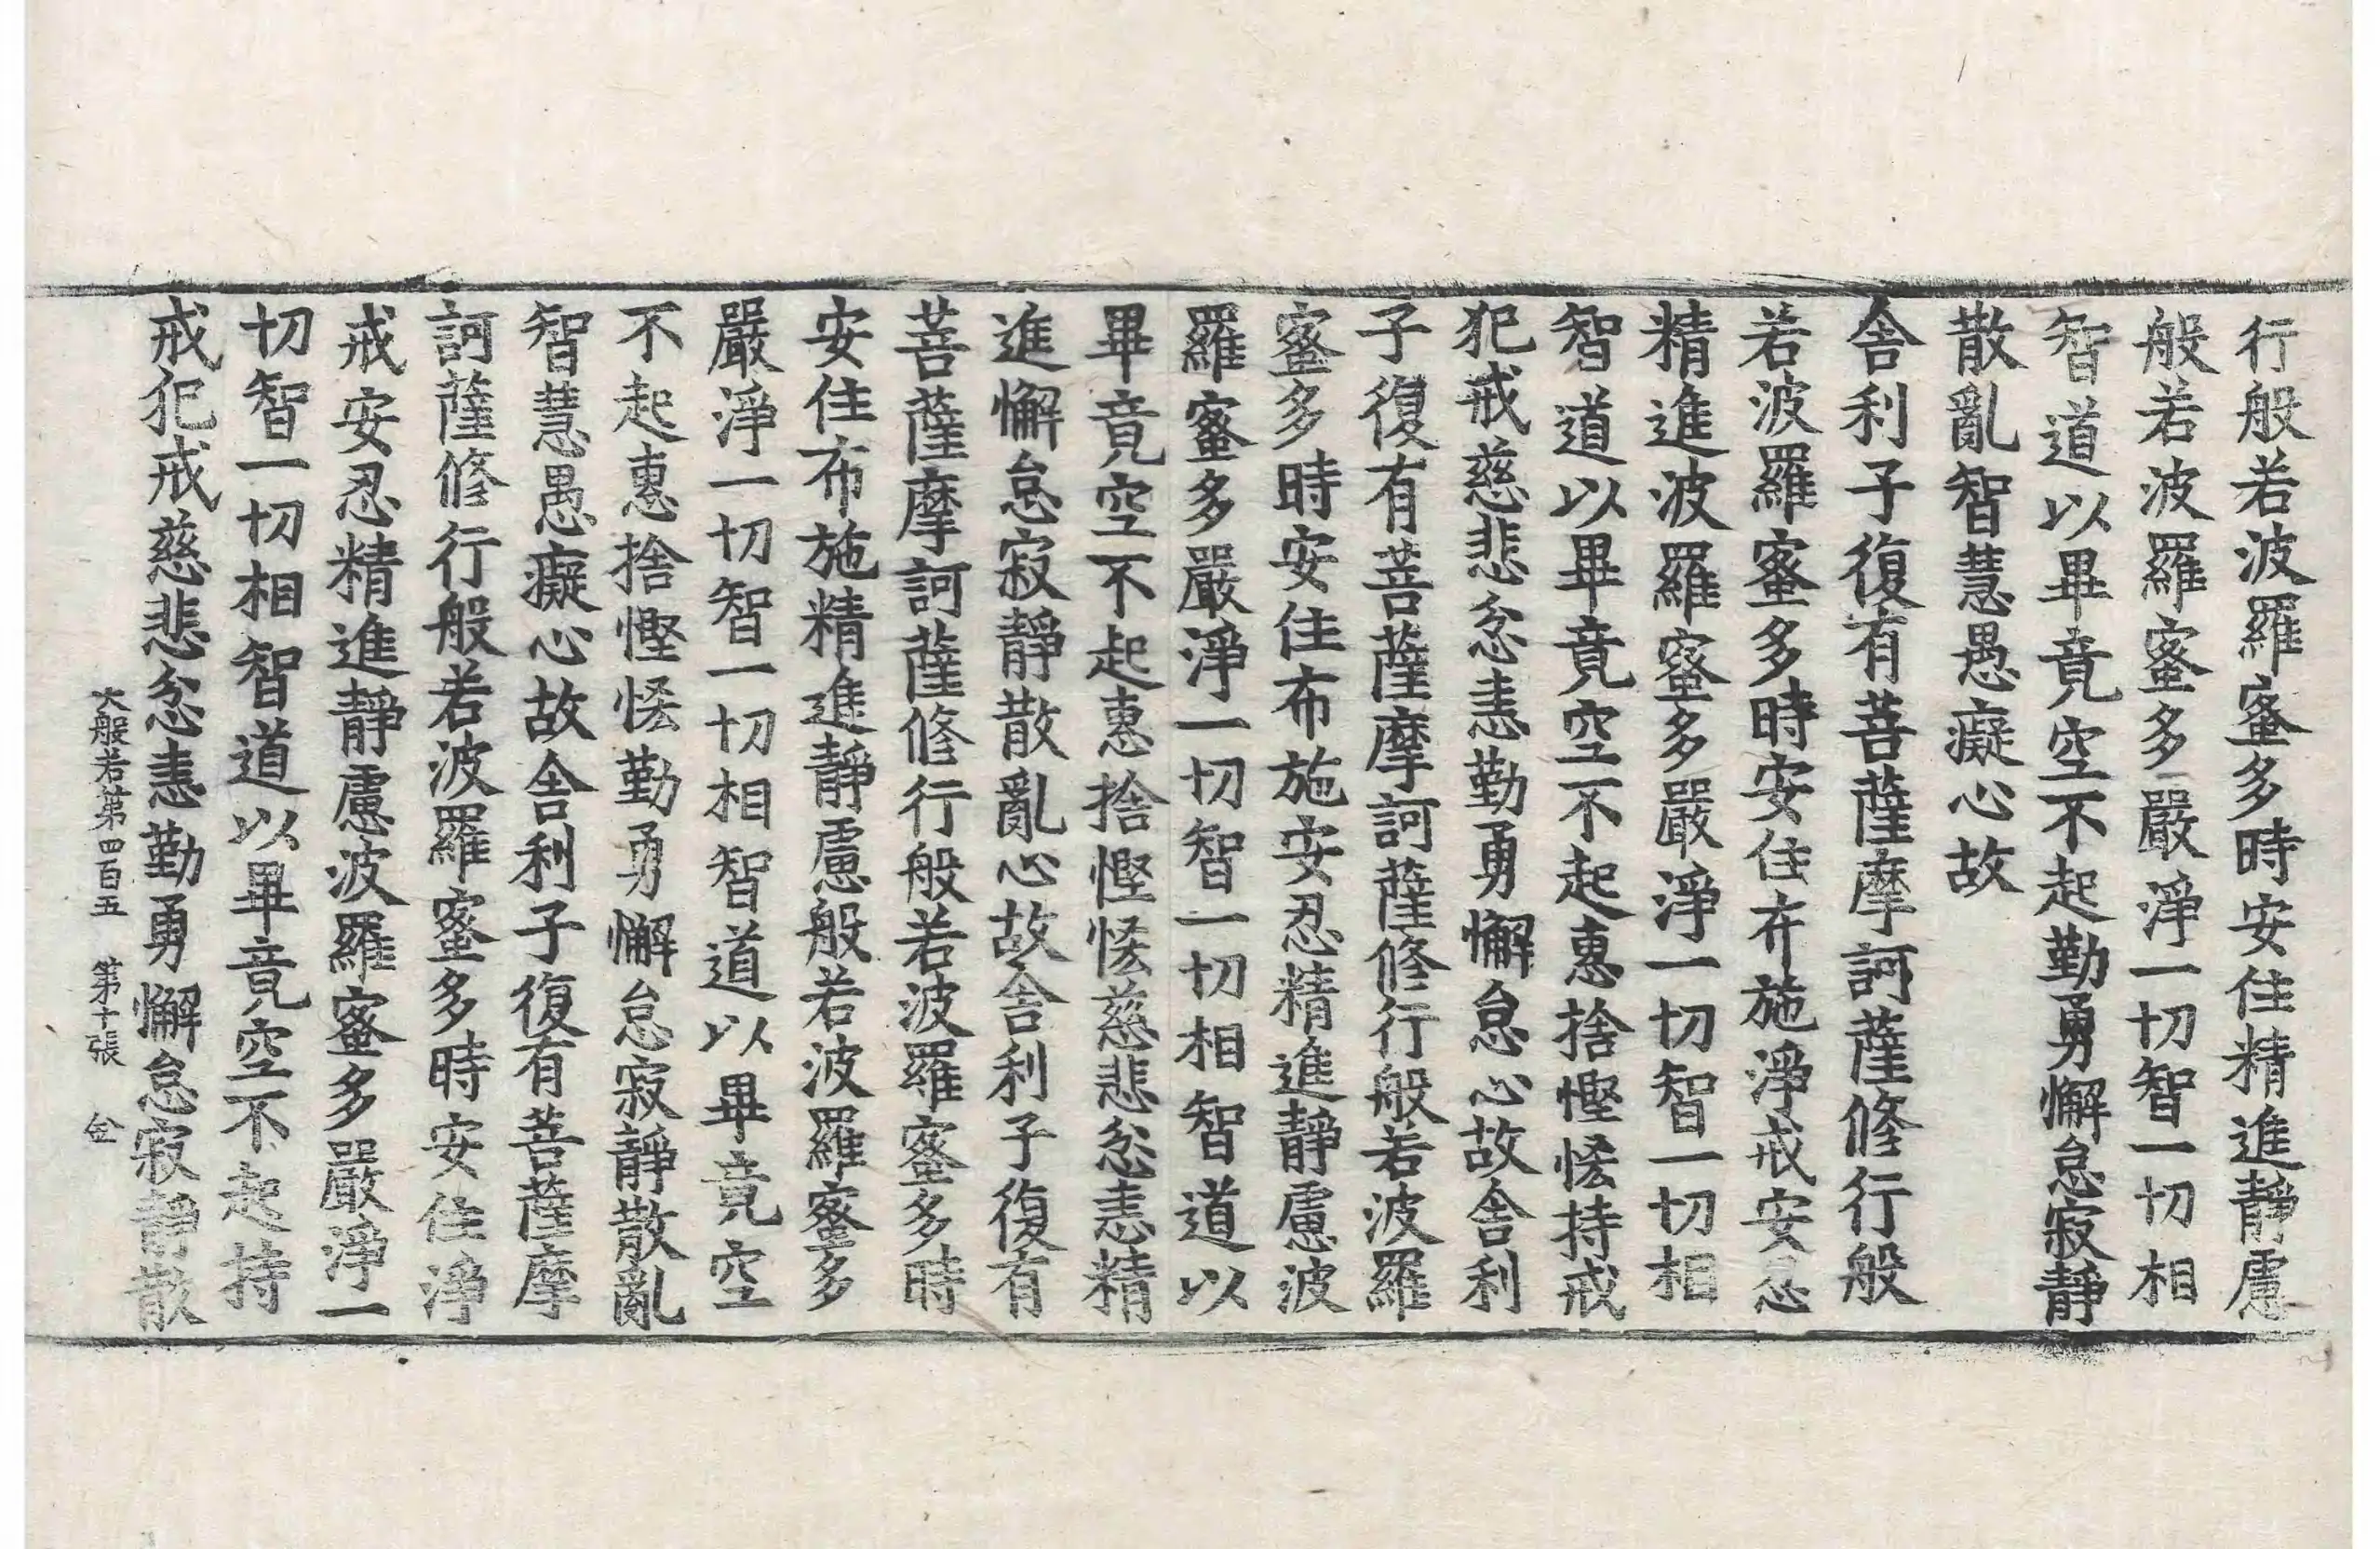 行般若波羅蜜多時安住精進靜慮
般若波羅蜜多嚴淨一切智一切相
智道以畢竟空不起勤勇懈怠寂靜
散亂智慧愚癡心故
舍利子復有菩薩摩訶薩修行般
若波羅蜜多時安住布施淨戒安忍
精進波羅蜜多嚴淨一切智一切相
智道以畢竟空不起惠捨慳悋持戒
犯戒慈悲忿恚勤勇懈怠心故舍利
子復有菩薩摩訶薩修行般若波羅
蜜多時安住布施安忍精進靜慮波
羅蜜多嚴淨一切智一切相智道以
畢竟空不起惠捨慳悋慈悲忿恚精
進懈怠寂靜散亂心故舍利子復有
菩薩摩訶薩修行般若波羅蜜多時
安住布施精進靜慮般若波羅蜜多
嚴淨一切智一切相智道以畢竟空
不起惠捨慳悋勤勇懈怠寂靜散亂
智慧愚癡心故舍利子復有菩薩摩
訶薩修行般若波羅蜜多時安住淨
戒安忍精進靜慮波羅蜜多嚴淨一
切智一切相智道以畢竟空不起持
戒犯戒慈悲忿恚勤勇懈怠寂靜散
大般若第四百五 第十張 金